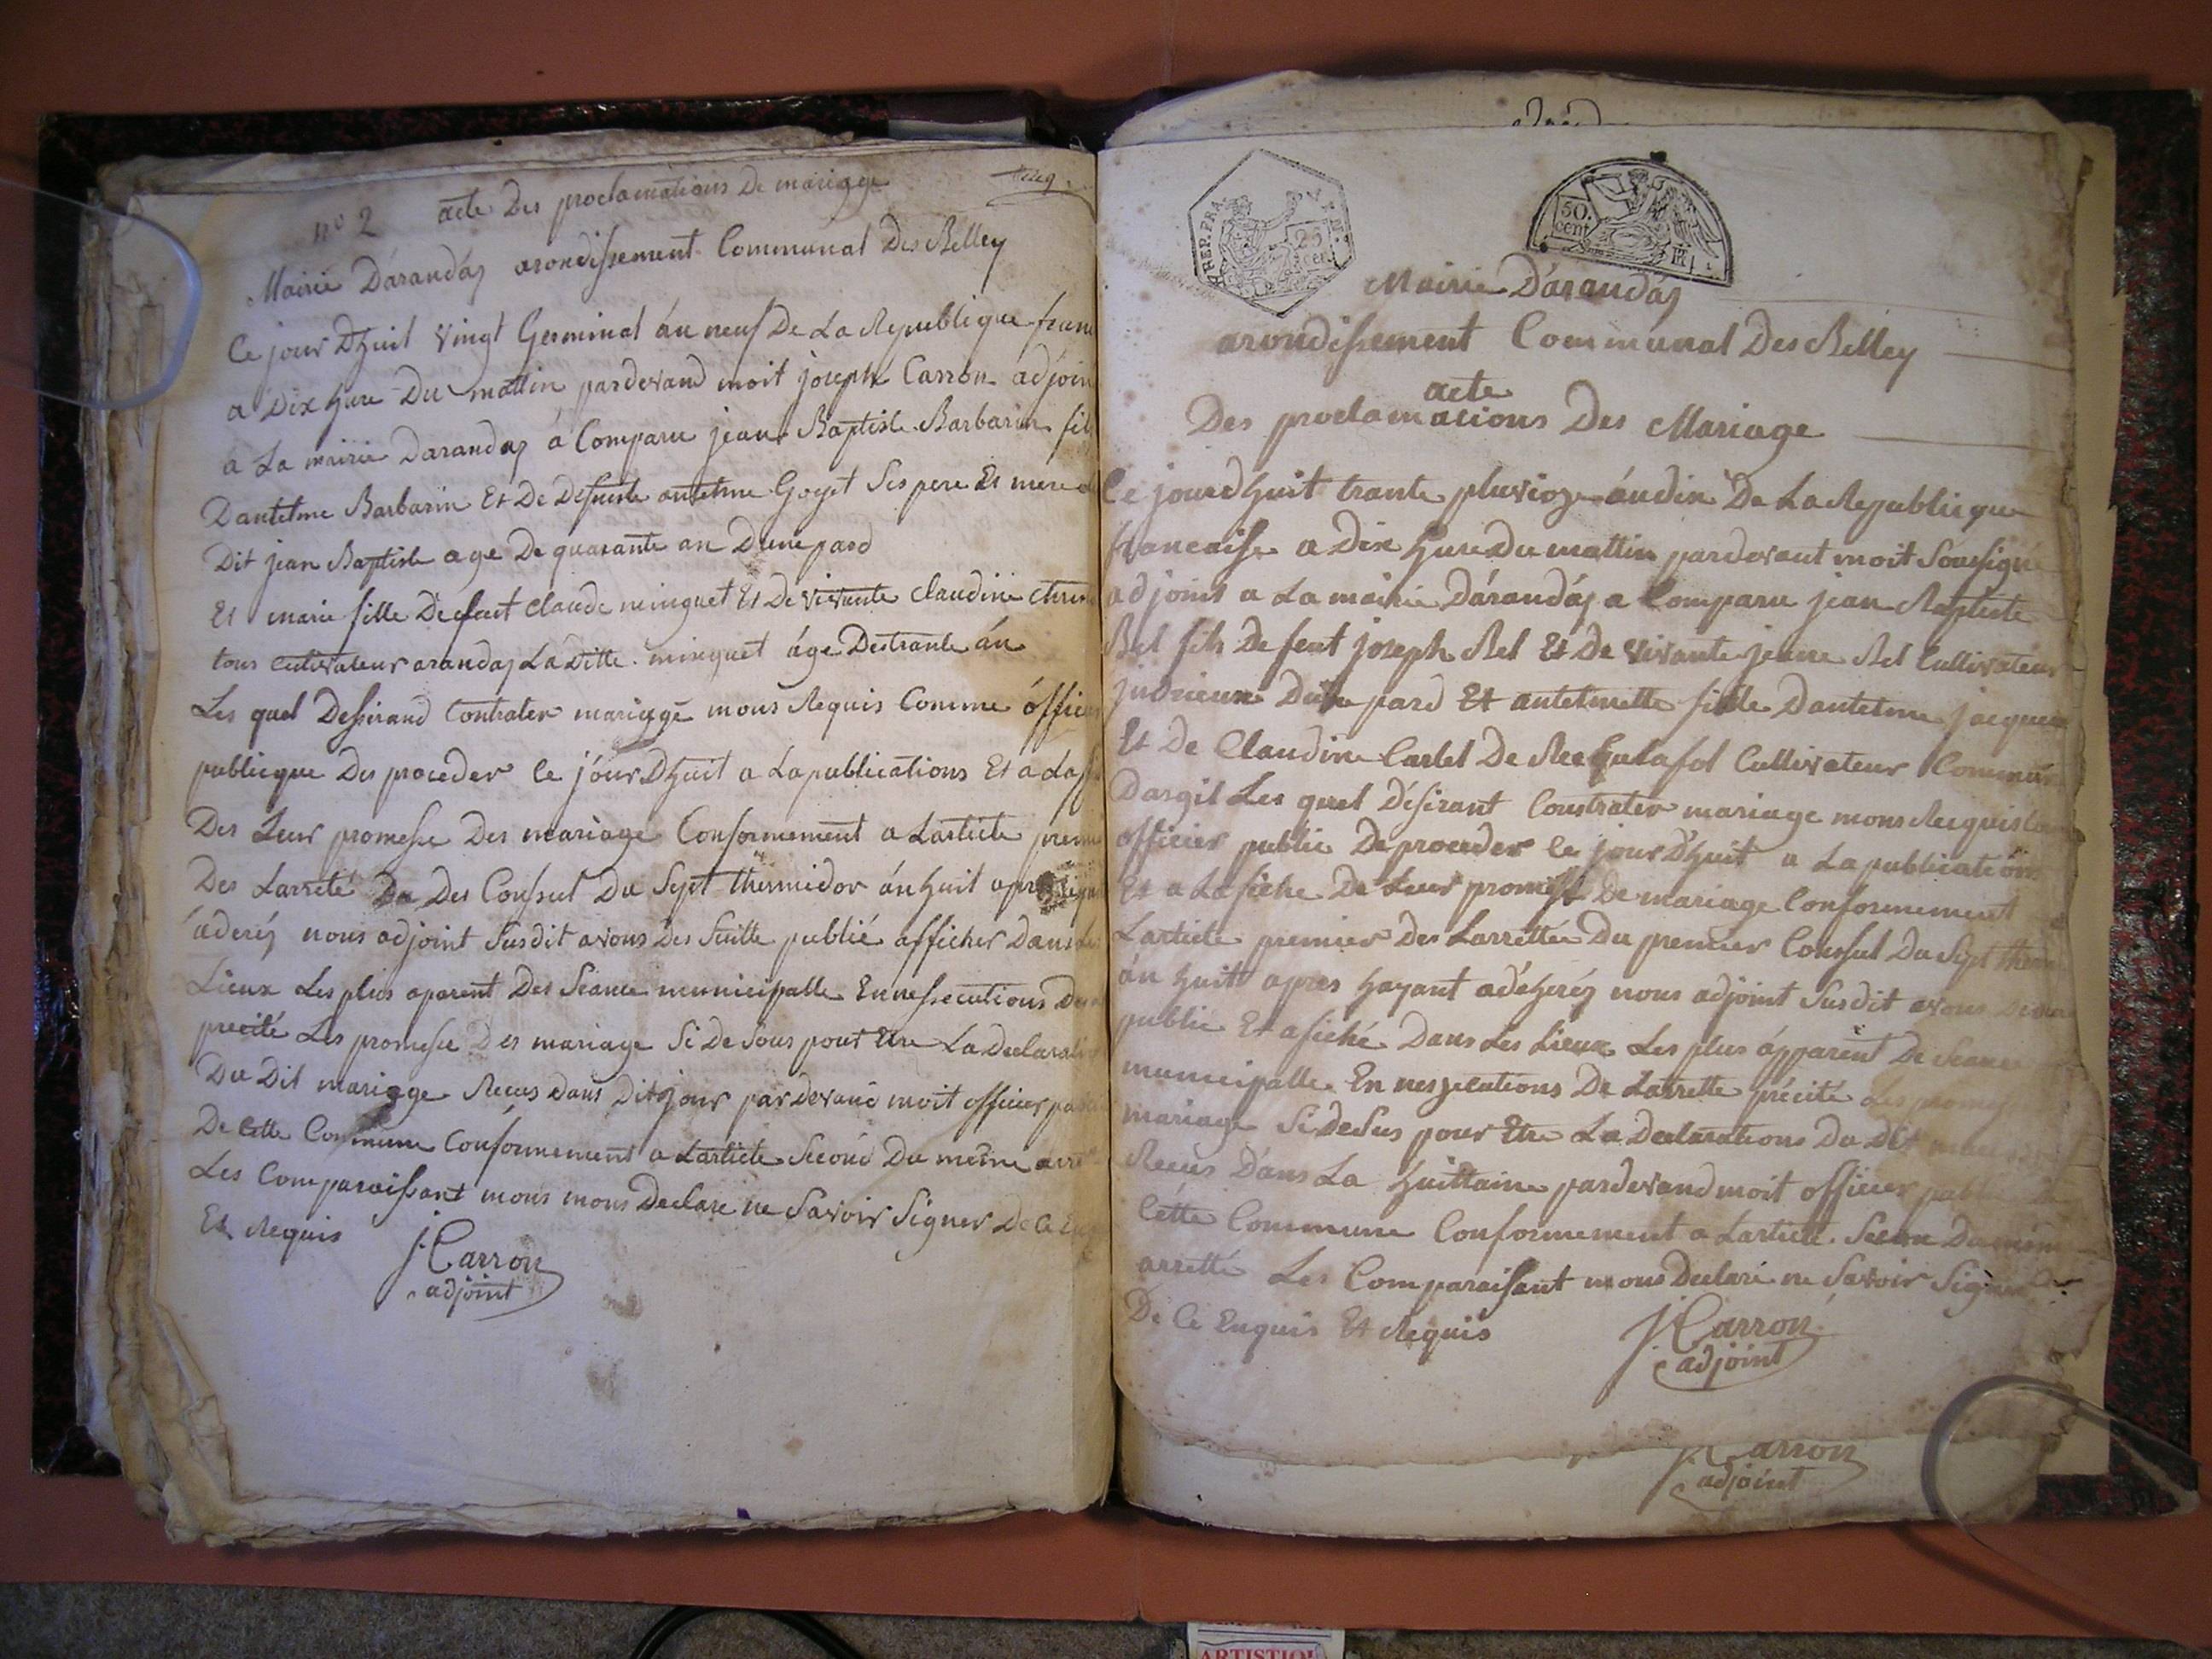 nº 2 acte Des proclamations De mariage
Mairie Dárandás arondissement Communal Des Belley
Ce jour Dhuit vingt Germinal án neuf De La Republique franc
a Dix hure Du mattin pardevand moit joseph Carron adjoin
a La mairie Darandas á Comparu jean Baptiste Barbarin fils
Dantelme Barbarin Et De Defuncte antelme Goyet Ses pere Et mere
Dit jean Baptiste age De quarante an Dune pard
Et marie fille De feut Claude minguet Et De vivante Claudine
tous Cultivateur arandas La Ditte minguet áge Des trante án
Les quel Dessirand Contrater mariage mous Requis Comme óffici
publicque Des proceder Ce jour Dhuit a La publications Et a Laf
Des Leur promesse Des mariage Conformement a Larticle premi
Des Larreté Du Des Consul Du Sept thermidor án huit apres
áderéz nous adjoint Susdit avons Des Suitte publié afficher Dans Les
Lieux Les plus aparent Des Seance municipalle En nessecutions De
precité Les promesse Des mariage Si De Sous pour Etre La Declaration
Du Dit mariage Recus Dans Dix jour par Devand moit officier pub
De Cette Commune Conformement a Larticle Second Du meme arre
Les Comparaissant mous mous Declare ne Savoir Signer De Ce En
Et Requis
J. Carron
adjoint
REP. FRA.
25
cen
50.
cent
Mairie Dárandás
arondissement Communal Des Belley
acte
Des proclamations Des Mariage
Ce jourdhuit trante pluvioze án dix De La Republique
francaise a Dix hure Du mattin pardevant moit Soussigné
adjoint a La mairie Dárandás a Comparu jean Baptiste
Bel fils De feut joseph Bel Et De vivante jeane Bel Cultivateur
judrieux Dune pard Et antelmette fille Dantelme jacque
Et De Claudine Carlel De Cultivateur Commun
Dargil Les quel Désirant Constrater mariage mous Recquis Com
officier public De proceder Ce jour Dhuit a La publication
Et a Lafiche De Leur promesse De mariage Conformement
Larticle premier Des Larrettée Du premier Consul Du Sept therm
án huit apres hayant adéheréz nous adjoint Susdit avons
public Et afiché Dans Les Lieux Les plus ápparent De Seance
municipalle En neszecutions De Larrette précité Les promes
mariage Si DeSus pour Etre La Declarations Du Dit
Recus Dans La huittaine pardevand moit officier public De
Cette Commune Conformement a Larticle Secon Du mem
arretté Les Comparaisant mous Declaré ne Savoir Signer
De Ce Enquis Et Requis
J. Carron
adjoint
J. Carron
adjoint
ARTISTIQU